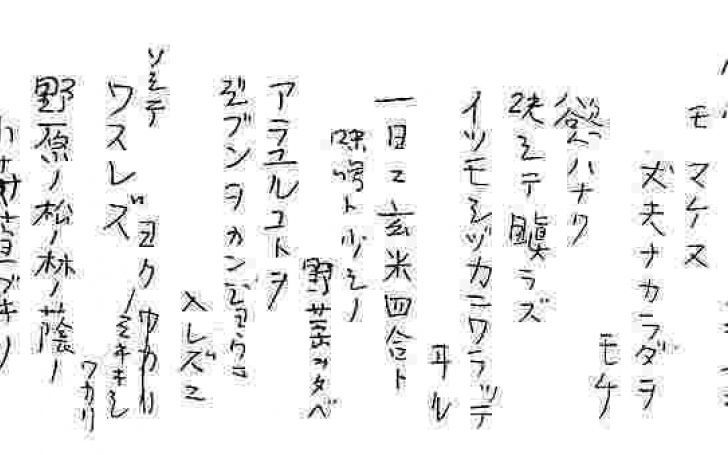 モ マケヌ
丈夫ナカラダヲ
モチ
慾ハナク
決シテ瞋ラズ
イツモシヅカニワラッテ
ヰル
一日ニ玄米四合ト
味噌ト少シノ
野菜ヲタベ
アラユルコトヲ
ジブンヲカンジョウニ
入レズニ
ヨクミキキシ
ワカリ
ソシテ
ワスレズ
野原ノ松ノ林ノ蔭ノ